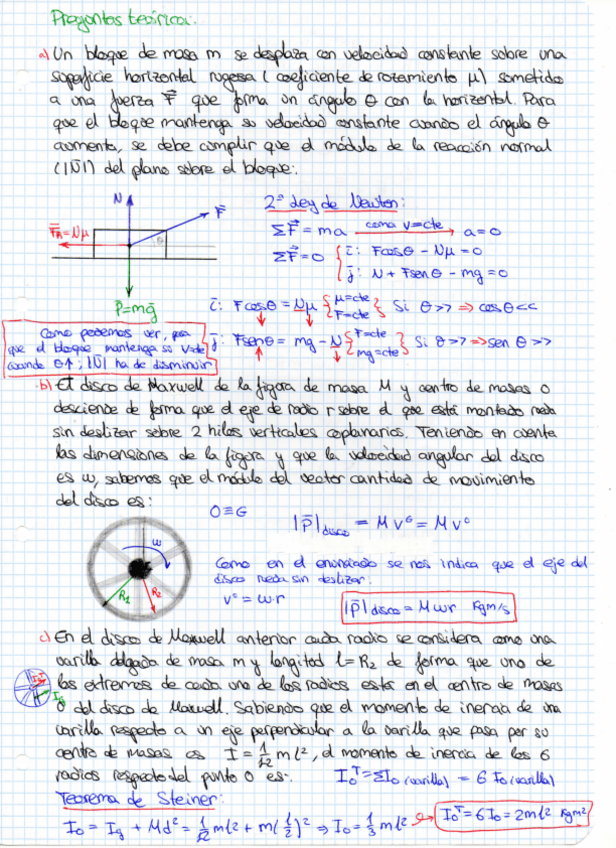 Preguntas teóricas:
a) Un bloque de masa m se desplaza con velocidad constante sobre una
superficie horizontal rugosa (coeficiente de rozamiento μ) sometido
a una fuerza F⃗ que forma un ángulo θ con la horizontal. Para
que el bloque mantenga su velocidad constante cuando el ángulo θ
aumenta, se debe cumplir que el módulo de la reacción normal
(|N̄|) del plano sobre el bloque:
N
F⃗
F̄R=Nμ
θ
P̄=mḡ
2ª Ley de Newton:
ΣF⃗ = ma como v=cte a=0
ΣF⃗=0 { ī: Fcosθ - Nμ = 0
j̄: N + Fsenθ - mg = 0
ī: Fcosθ = Nμ { μ=cte F=cte } Si θ>> ⇒ cosθ<<
j̄: Fsenθ = mg - N { F=cte mg=cte } Si θ>> ⇒ sen θ >>
Como podemos ver, para
que el bloque mantenga su v=cte
cuando θ↑, |N̄| ha de disminuir
b) El disco de Maxwell de la figura de masa M y centro de masas O
desciende de forma que el eje de radio r sobre el que está montado rueda
sin deslizar sobre 2 hilos verticales coplanarios. Teniendo en cuenta
las dimensiones de la figura y que la velocidad angular del disco
es ω, sabemos que el módulo del vector cantidad de movimiento
del disco es:
O≡G
|P̄|disco = M vᴳ = M v⁰
ω
R1
R2
Como en el enunciado se nos indica que el eje del
disco rueda sin deslizar.
v⁰ = ω·r
|P̄| disco = Mωr kgm/s
c) En el disco de Maxwell anterior cada radio se considera como una
varilla delgada de masa m y longitud l=R2 de forma que uno de
los extremos de cada uno de los radios está en el centro de masas
O del disco de Maxwell. Sabiendo que el momento de inercia de una
varilla respecto a un eje perpendicular a la varilla que pasa por su
centro de masas es I = 1/12 ml², el momento de inercia de los 6
radios respecto del punto O es:
I₀ᵀ=ΣI₀ (varilla) = 6 I₀ (varilla)
Teorema de Steiner:
I₀ = Ig + Md² = 1/12 ml² + m(l/2)² ⇒ I₀ = 1/3 ml²
I₀ᵀ=6I₀ = 2ml² kgm²